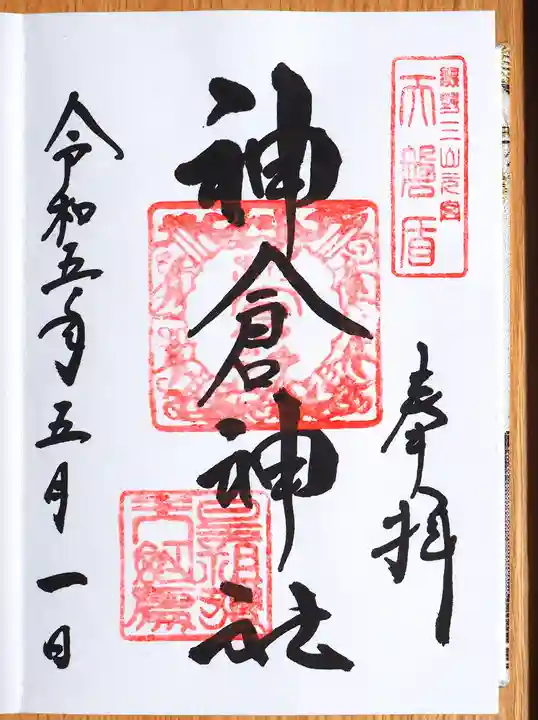 熊野三山元宮
天磐盾
奉拝
神倉神社
令和五年五月一日